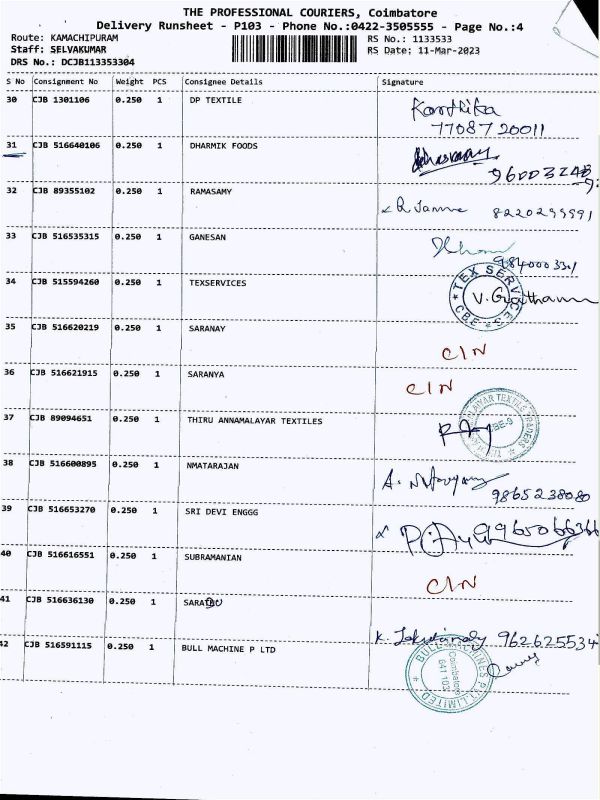 THE PROFESSIONAL COURIERS, Coimbatore
Delivery Runsheet - P103 - Phone No.:0422-3505555 - Page No.:4
Route: KAMACHIPURAM
RS No.: 1133533
Staff: SELVAKUMAR
RS Date: 11-Mar-2023
DRS No.: DCJB113353304
S No Consignment No Weight PCS Consignee Details Signature
30 CJB 1301106 0.250 1 DP TEXTILE Karthika
7708720011
31 CJB 516640106 0.250 1 DHARMIK FOODS
96003
32 CJB 89355102 0.250 1 RAMASAMY 8220299991
33 CJB 516535315 0.250 1 GANESAN
34 CJB 515594260 0.250 1 TEXSERVICES TEX SERVICES CBE V. Gowtham
35 CJB 516620219 0.250 1 SARANAY C/N
36 CJB 516621915 0.250 1 SARANYA C/N
37 CJB 89094651 0.250 1 THIRU ANNAMALAYAR TEXTILES
38 CJB 516600895 0.250 1 NMATARAJAN
9865238080
39 CJB 516653270 0.250 1 SRI DEVI ENGGG 9965066366
40 CJB 516616551 0.250 1 SUBRAMANIAN C/N
41 CJB 516636130 0.250 1
K. 962625534
42 CJB 516591115 0.250 1 BULL MACHINE P LTD BULL MACHINES PVT LIMITED
Coimbatore
641 103